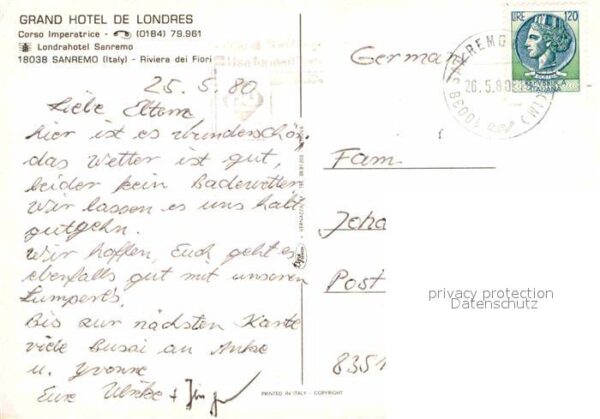 GRAND HOTEL DE LONDRES
Corso Imperatrice - (0184) 79.961
Londrahotel Sanremo
18038 SANREMO (Italy) - Riviera dei Fiori
25.5.80
Liebe Eltern
hier ist es wunderschön,
das Wetter ist gut,
leider kein Badewetter
Wir lassen es uns halt
gutgehn.
Wir hoffen, Euch geht es
ebenfalls gut mit unseren
Lumperts,
Bis zur nächsten Karte
viele Bussi an Anke
u. Yvonne
Eure Ulrike +
PRINTED IN ITALY - COPYRIGHT
LIRE 120
REPUBBLICA
ITALIANA
26.5.80
18038 (IM)
German
Fam
Joha
Post
8351
privacy protection
Datenschutz